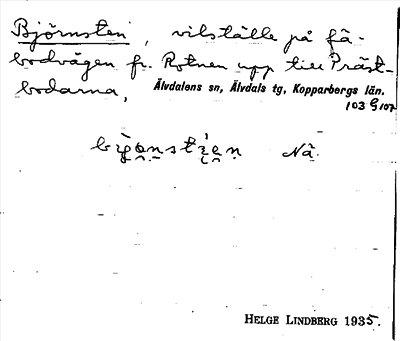 Björnsten, vilställe på fä-
bodvägen fr. Rotnen upp till Präst-
bodarna,
Älvdalens sn, Älvdals tg, Kopparbergs län.
103 G 107
Nä.
HELGE LINDBERG 1935.